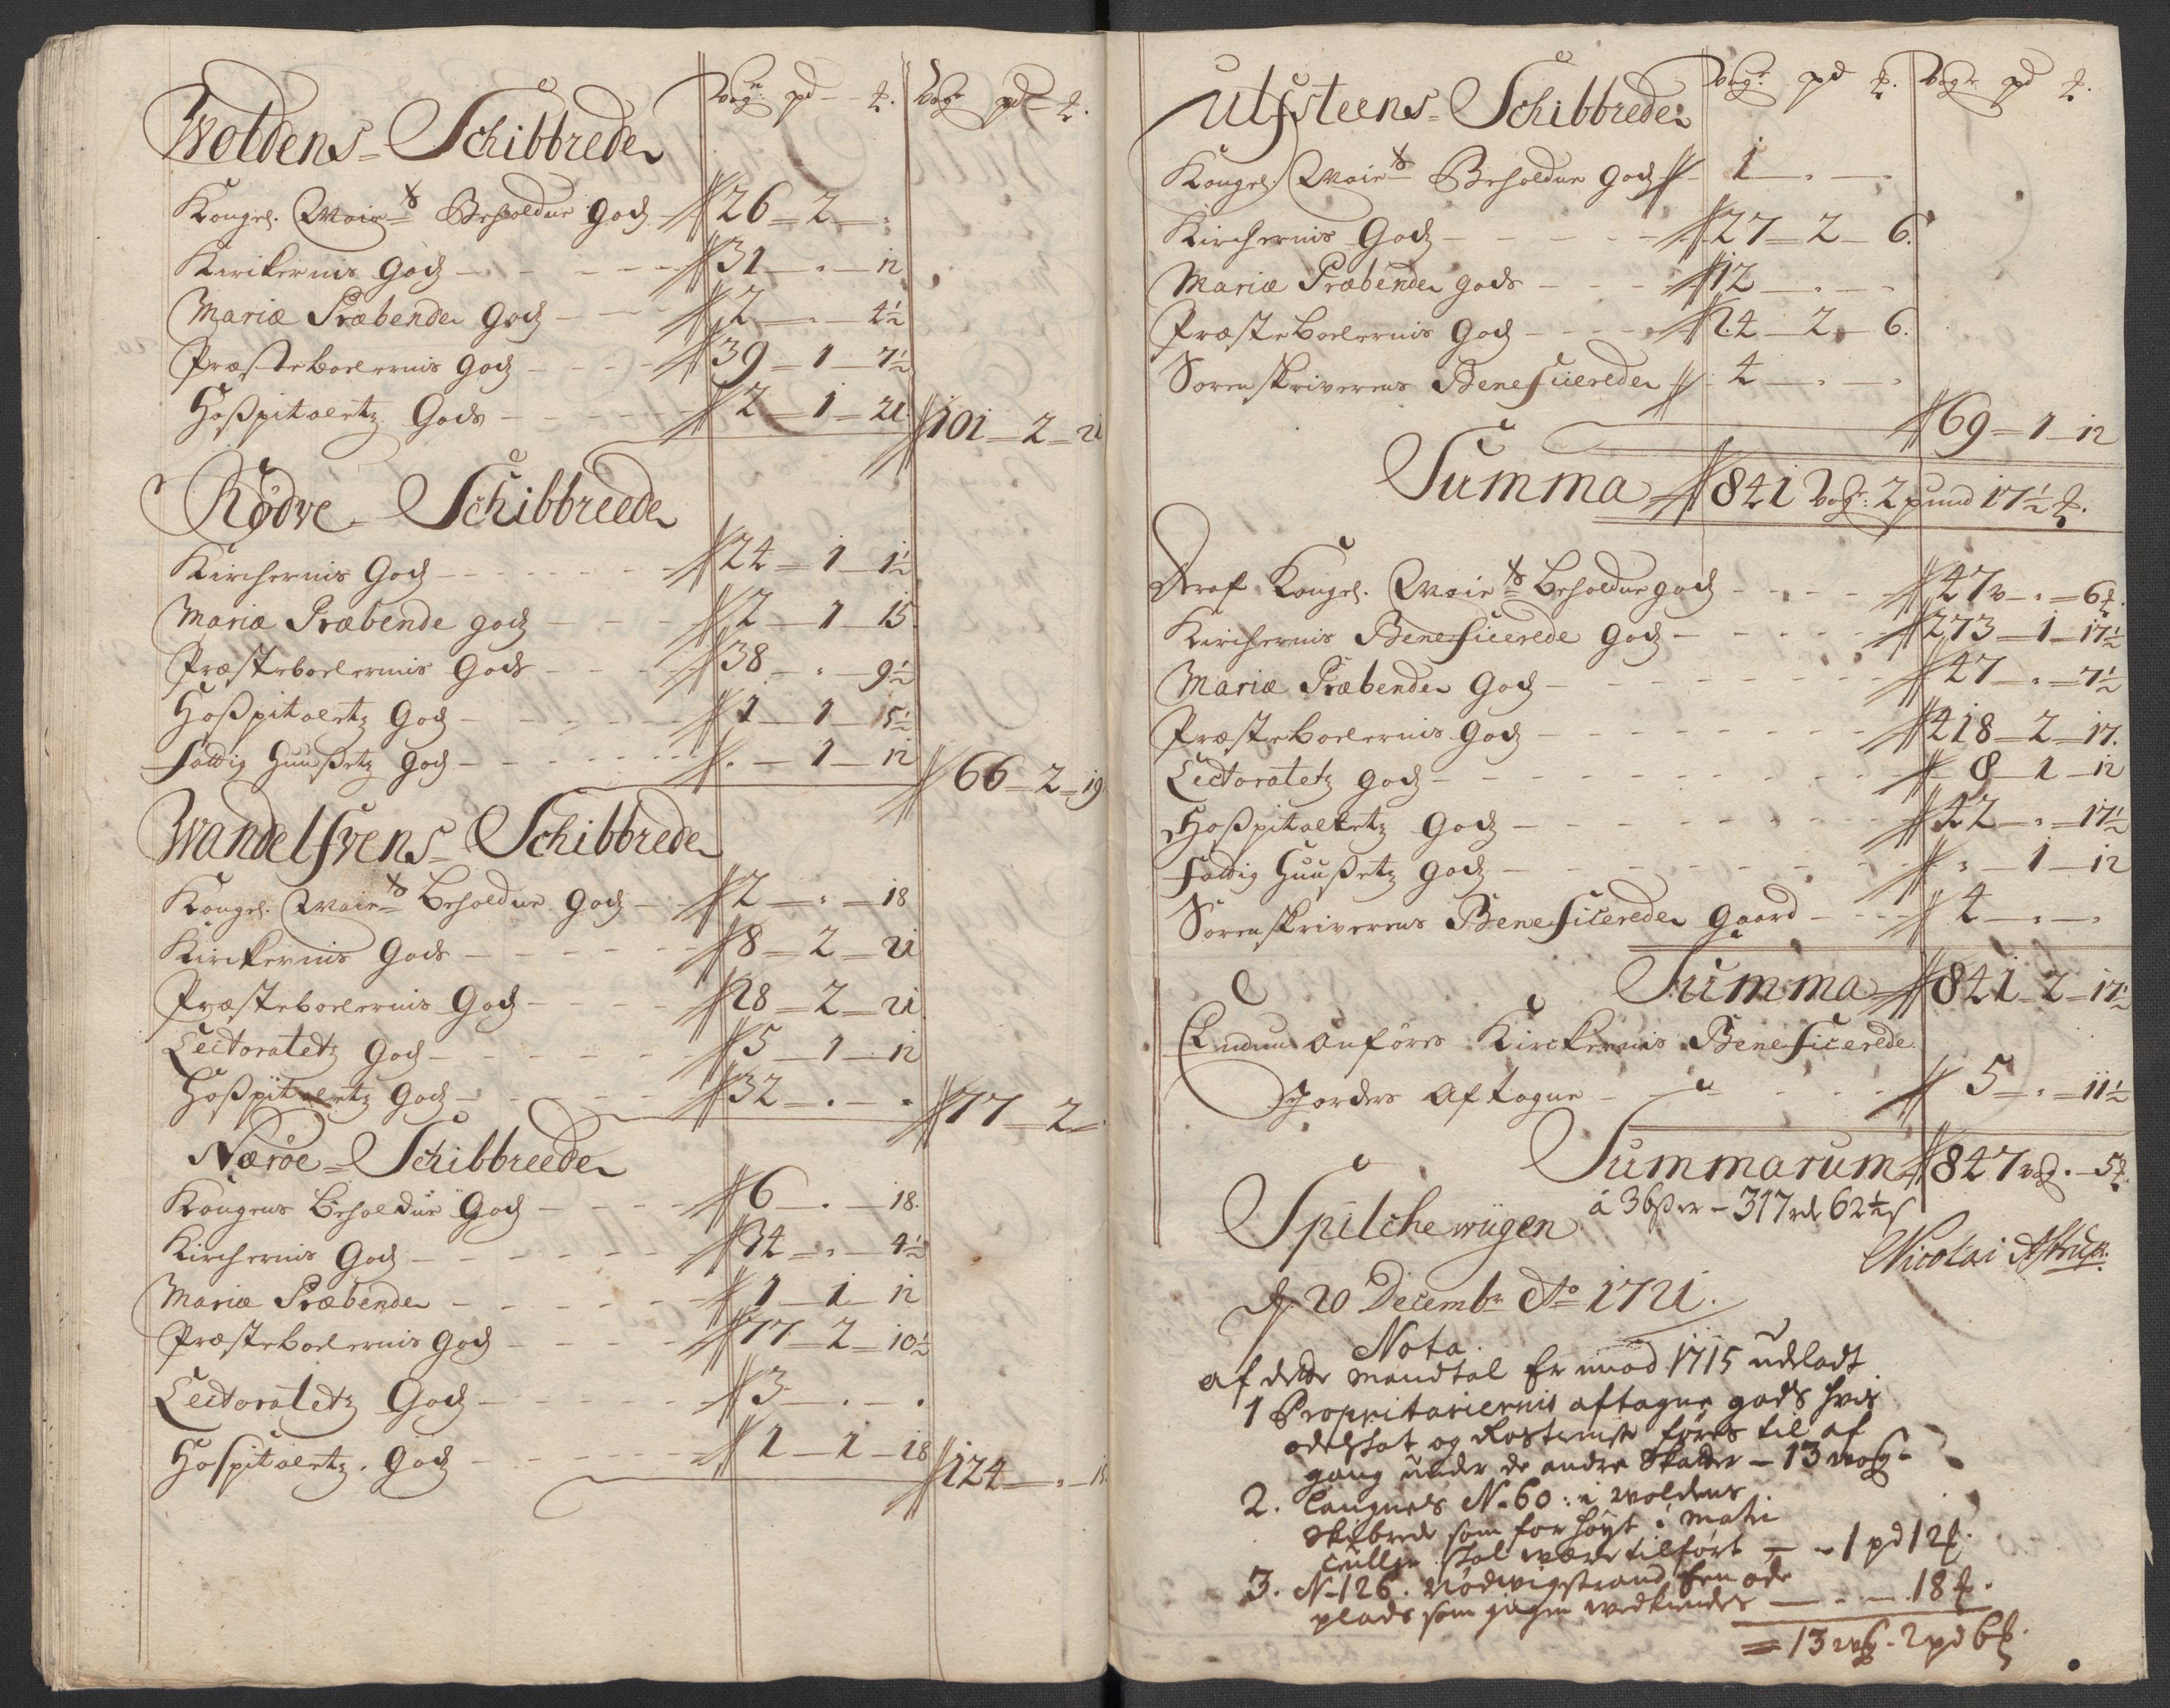 Woldens Schibbrede
wog: pd ℔. wog pd ℔.
Kongel. Maie:ts Beholdne God 26 - 2 -
Kirkernis God 31 - . - 12
Mariæ Præbende God 2 - . - 4½
Præsteboelernis God 39 - 1 - 7½
Hosspitaletz Gods 2 - 1 - 21 101 - 2 - 21
Rødve Schibbreede
Kirchernis God 24 - 1 - 1½
Mariæ Præbende god 2 - 1 - 15
Præsteboelernis Gods 38 - . - 9½
Hosspitaletz God 1 - 1 - 15½
Fattig Huussetz God . - 1 - 12 66 - 2 - 19
Wandelfvens Schibbrede
Kongel. Maie:ts Beholdne God 2 - . - 18
Kirckernis Gods 8 - 2 - 21
Præsteboelernis God 28 - 2 - 21
Lectoratetz God 5 - 1 - 12
Hosspitaletz God 32 - . - . 77 - 2 -
Nærøe Schibbreede
Kongens Beholdne God 6 - . - 18.
Kirchernis God 34 - . - 4½
Mariæ Præbende 1 - 1 - 12
Præsteboelernis God 77 - 2 - 10½
Lectoratetz God 3 - . - .
Hospitaletz God 1 - 1 - 18 124 - . -
Ulfsteens Schibbrede
wog: pd ℔. wog pd ℔.
Kongel. Maie:ts Beholdne God 1 - . - .
Kirchernis God 27 - 2 - 6.
Mariæ Præbende gods 12 - . - .
Præsteboelernis God 24 - 2 - 6.
Sorenskriverens Beneficerede 4 - . - .
69 - 1 - 12
Summa 841 wog: 2 pund 17½ ℔.
Deraf Kongel. Maie:ts Beholdne god 47 w - . - 6 ℔.
Kirchernis Beneficerede God 273 - 1 - 17½
Mariæ Præbende God 47 - . - 7½
Præsteboelernis God 418 - 2 - 17.
Lectoratetz God 8 - 1 - 12
Hosspitaletz God 42 - . - 17½
Fattig Huussetz God . - 1 - 12
Sorenskriverens Beneficerede Gaard 4 - . - .
Summa 841 - 2 - 17½
Endnu Anføres Kirckernis Beneficerede
Jorders Aftagne 5 - . - 11½
Summarum 847 wog . - 5 ℔.
á 36 ß er - 317 rdr 62½ ß
Spilchewiigen
d. 20 Decembr Ao 1721.
Nicolai Astrup.
Nota.
af dette Mandtal Er imod 1715 udeladt
1 Propritariernis aftagne gods hvis
odelskat og Rostieniste føres til af
gang under de andre Skatter - 13 wog -
2. Langnes No 60: i Woldens
Skibrede som for høyt i Matri
cullen skal være tilført - 1 pd 12 ℔.
3. No 126. Nødwigstrand Een øde
plads som ingen wedkiendes - 18 ℔.
= 13 wog - 2 pd 6 ℔.